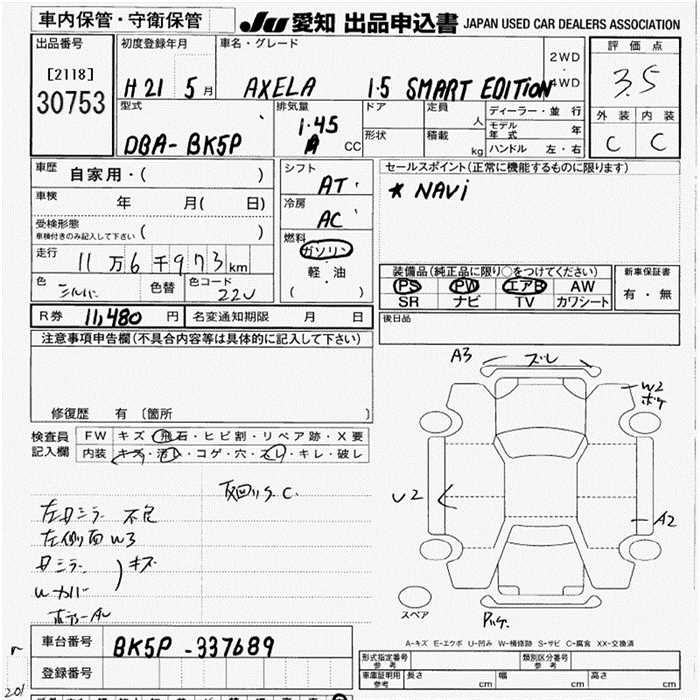 車内保管・守衛保管
JU 愛知 出品申込書 JAPAN USED CAR DEALERS ASSOCIATION
出品番号
[2118]
30753
初度登録年月
H21 5月
車名・グレード
AXELA 1.5 SMART EDITION
2WD
・
4WD
評価点
3.5
外装 内装
C C
型式
DBA- BK5P
排気量
1.45
CC
ドア
形状
定員
人
積載
kg
ディーラー・並行
モデル年式 年
ハンドル 左・右
車歴
自家用・( )
車検
年 月( 日)
受検形態
車検付きのみ記入して下さい ( )
走行
11万6千973km
色
シルバー
色替
色コード
22V
シフト
AT
冷房
AC
燃料
ガソリン
・
軽油
( )
セールスポイント(正常に機能するものに限ります)
* NAVi
装備品(純正品に限り○をつけてください)
PS PW エアB AW
SR ナビ TV カワシート
新車保証書
有・無
R券 11,480 円
名変通知期限 月 日
後日品
注意事項申告欄(不具合内容等は具体的に記入して下さい)
修復歴 有 〔箇所 〕
検査員
記入欄
FW キズ・飛石・ヒビ割・リペア跡・X要
内装 キズ・汚レ・コゲ・穴・スレ・キレ・破レ
左ミラー 不良
左側面 W3
ミラー
キズ
A3
ズレ
W2
ボケ
U2
A2
スペア
A-キズ E-エクボ U-凹み W-補修跡 S-サビ C-腐食 XX-交換済
車台番号
BK5P -337689
登録番号
形式指定番号
参考
類別区分番号
参考
車庫証明用
参考
長さ cm 幅 cm 高さ cm
201